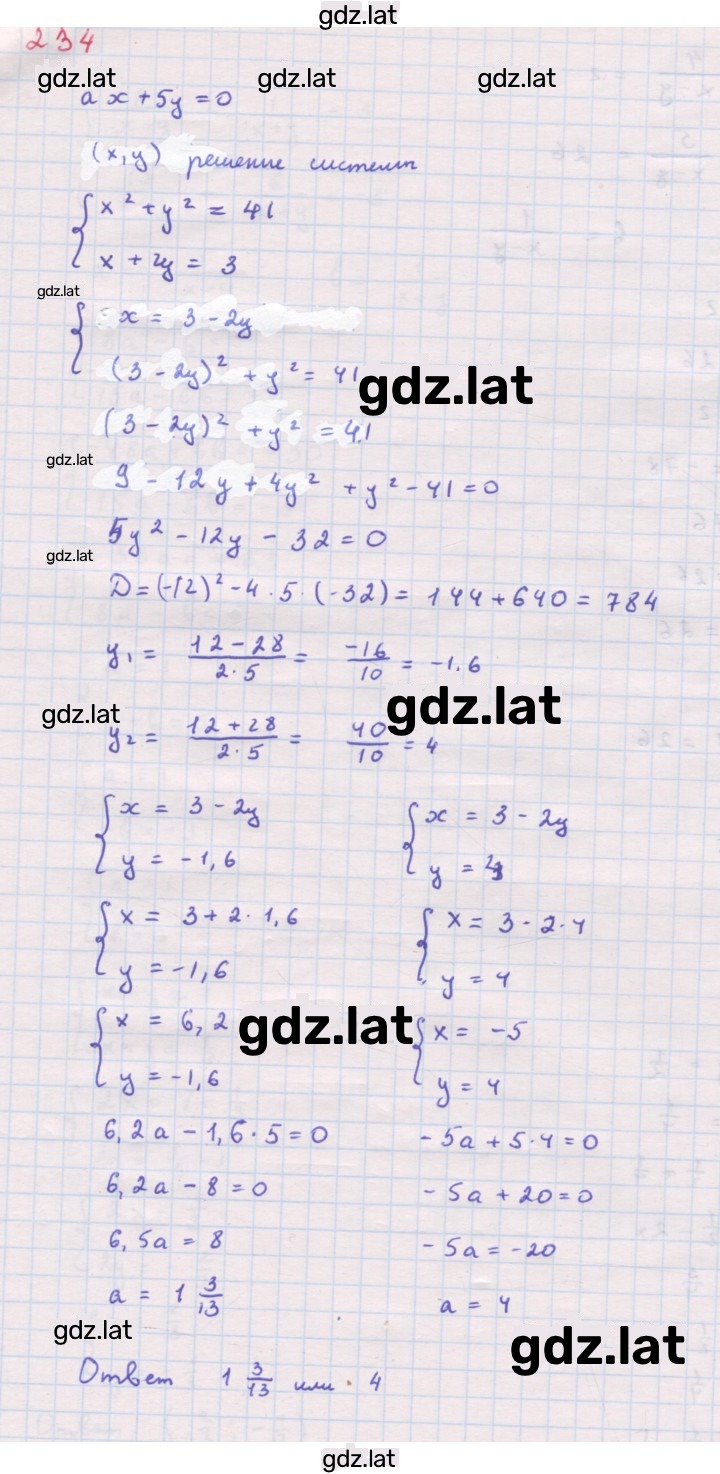 gdz.lat
234
gdz.lat gdz.lat gdz.lat
ax + 5y = 0
(x, y) решение системы
x² + y² = 41
x + 2y = 3
gdz.lat
x = 3 - 2y
(3 - 2y)² + y² = 41
gdz.lat
(3 - 2y)² + y² = 41
gdz.lat
9 - 12y + 4y² + y² - 41 = 0
5y² - 12y - 32 = 0
gdz.lat
D = (-12)² - 4 · 5 · (-32) = 144 + 640 = 784
y₁ = (12 - 28)/(2·5) = -16/10 = -1.6
gdz.lat gdz.lat
y₂ = (12 + 28)/(2·5) = 40/10 = 4
x = 3 - 2y x = 3 - 2y
y = -1,6 y = 4
x = 3 + 2 · 1,6 x = 3 - 2 · 4
y = -1,6 y = 4
x = 6,2 x = -5
gdz.lat
y = -1,6 y = 4
6,2a - 1,6 · 5 = 0 -5a + 5 · 4 = 0
6,2a - 8 = 0 -5a + 20 = 0
6,5a = 8 -5a = -20
a = 1 3/13 a = 4
gdz.lat gdz.lat
Ответ 1 3/13 или 4
gdz.lat